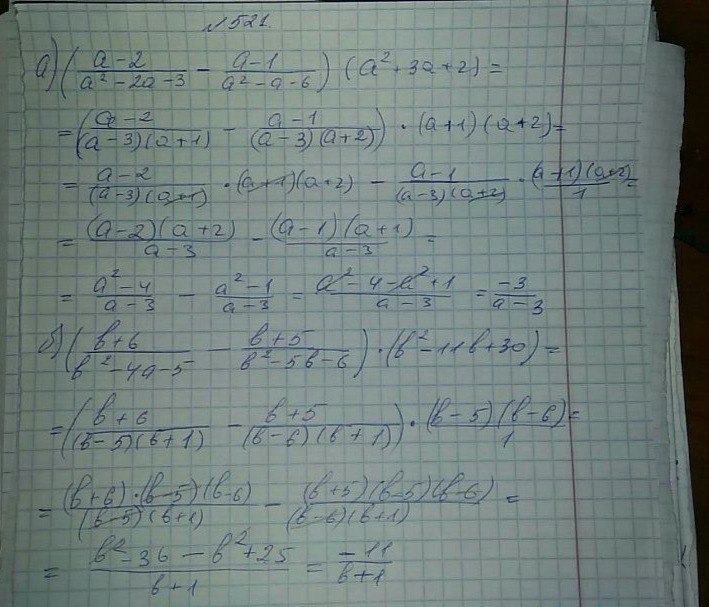 №521.
а) ((a-2)/(a²-2a-3) - (a-1)/(a²-a-6)) (a²+3a+2) =
= ((a-2)/((a-3)(a+1)) - (a-1)/((a-3)(a+2))) · (a+1)(a+2) =
= (a-2)/((a-3)(a+1)) · (a+1)(a+2) - (a-1)/((a-3)(a+2)) · ((a+1)(a+2))/1 =
= ((a-2)(a+2))/(a-3) - ((a-1)(a+1))/(a-3) =
= (a²-4)/(a-3) - (a²-1)/(a-3) = (a²-4-a²+1)/(a-3) = (-3)/(a-3)
б) ((b+6)/(b²-4a-5) - (b+5)/(b²-5b-6)) · (b²-11b+30) =
= ((b+6)/((b-5)(b+1)) - (b+5)/((b-6)(b+1))) · ((b-5)(b-6))/1 =
= ((b+6)·(b-5)(b-6))/((b-5)(b+1)) - ((b+5)(b-5)(b-6))/((b-6)(b+1)) =
= (b²-36-b²+25)/(b+1) = (-11)/(b+1)